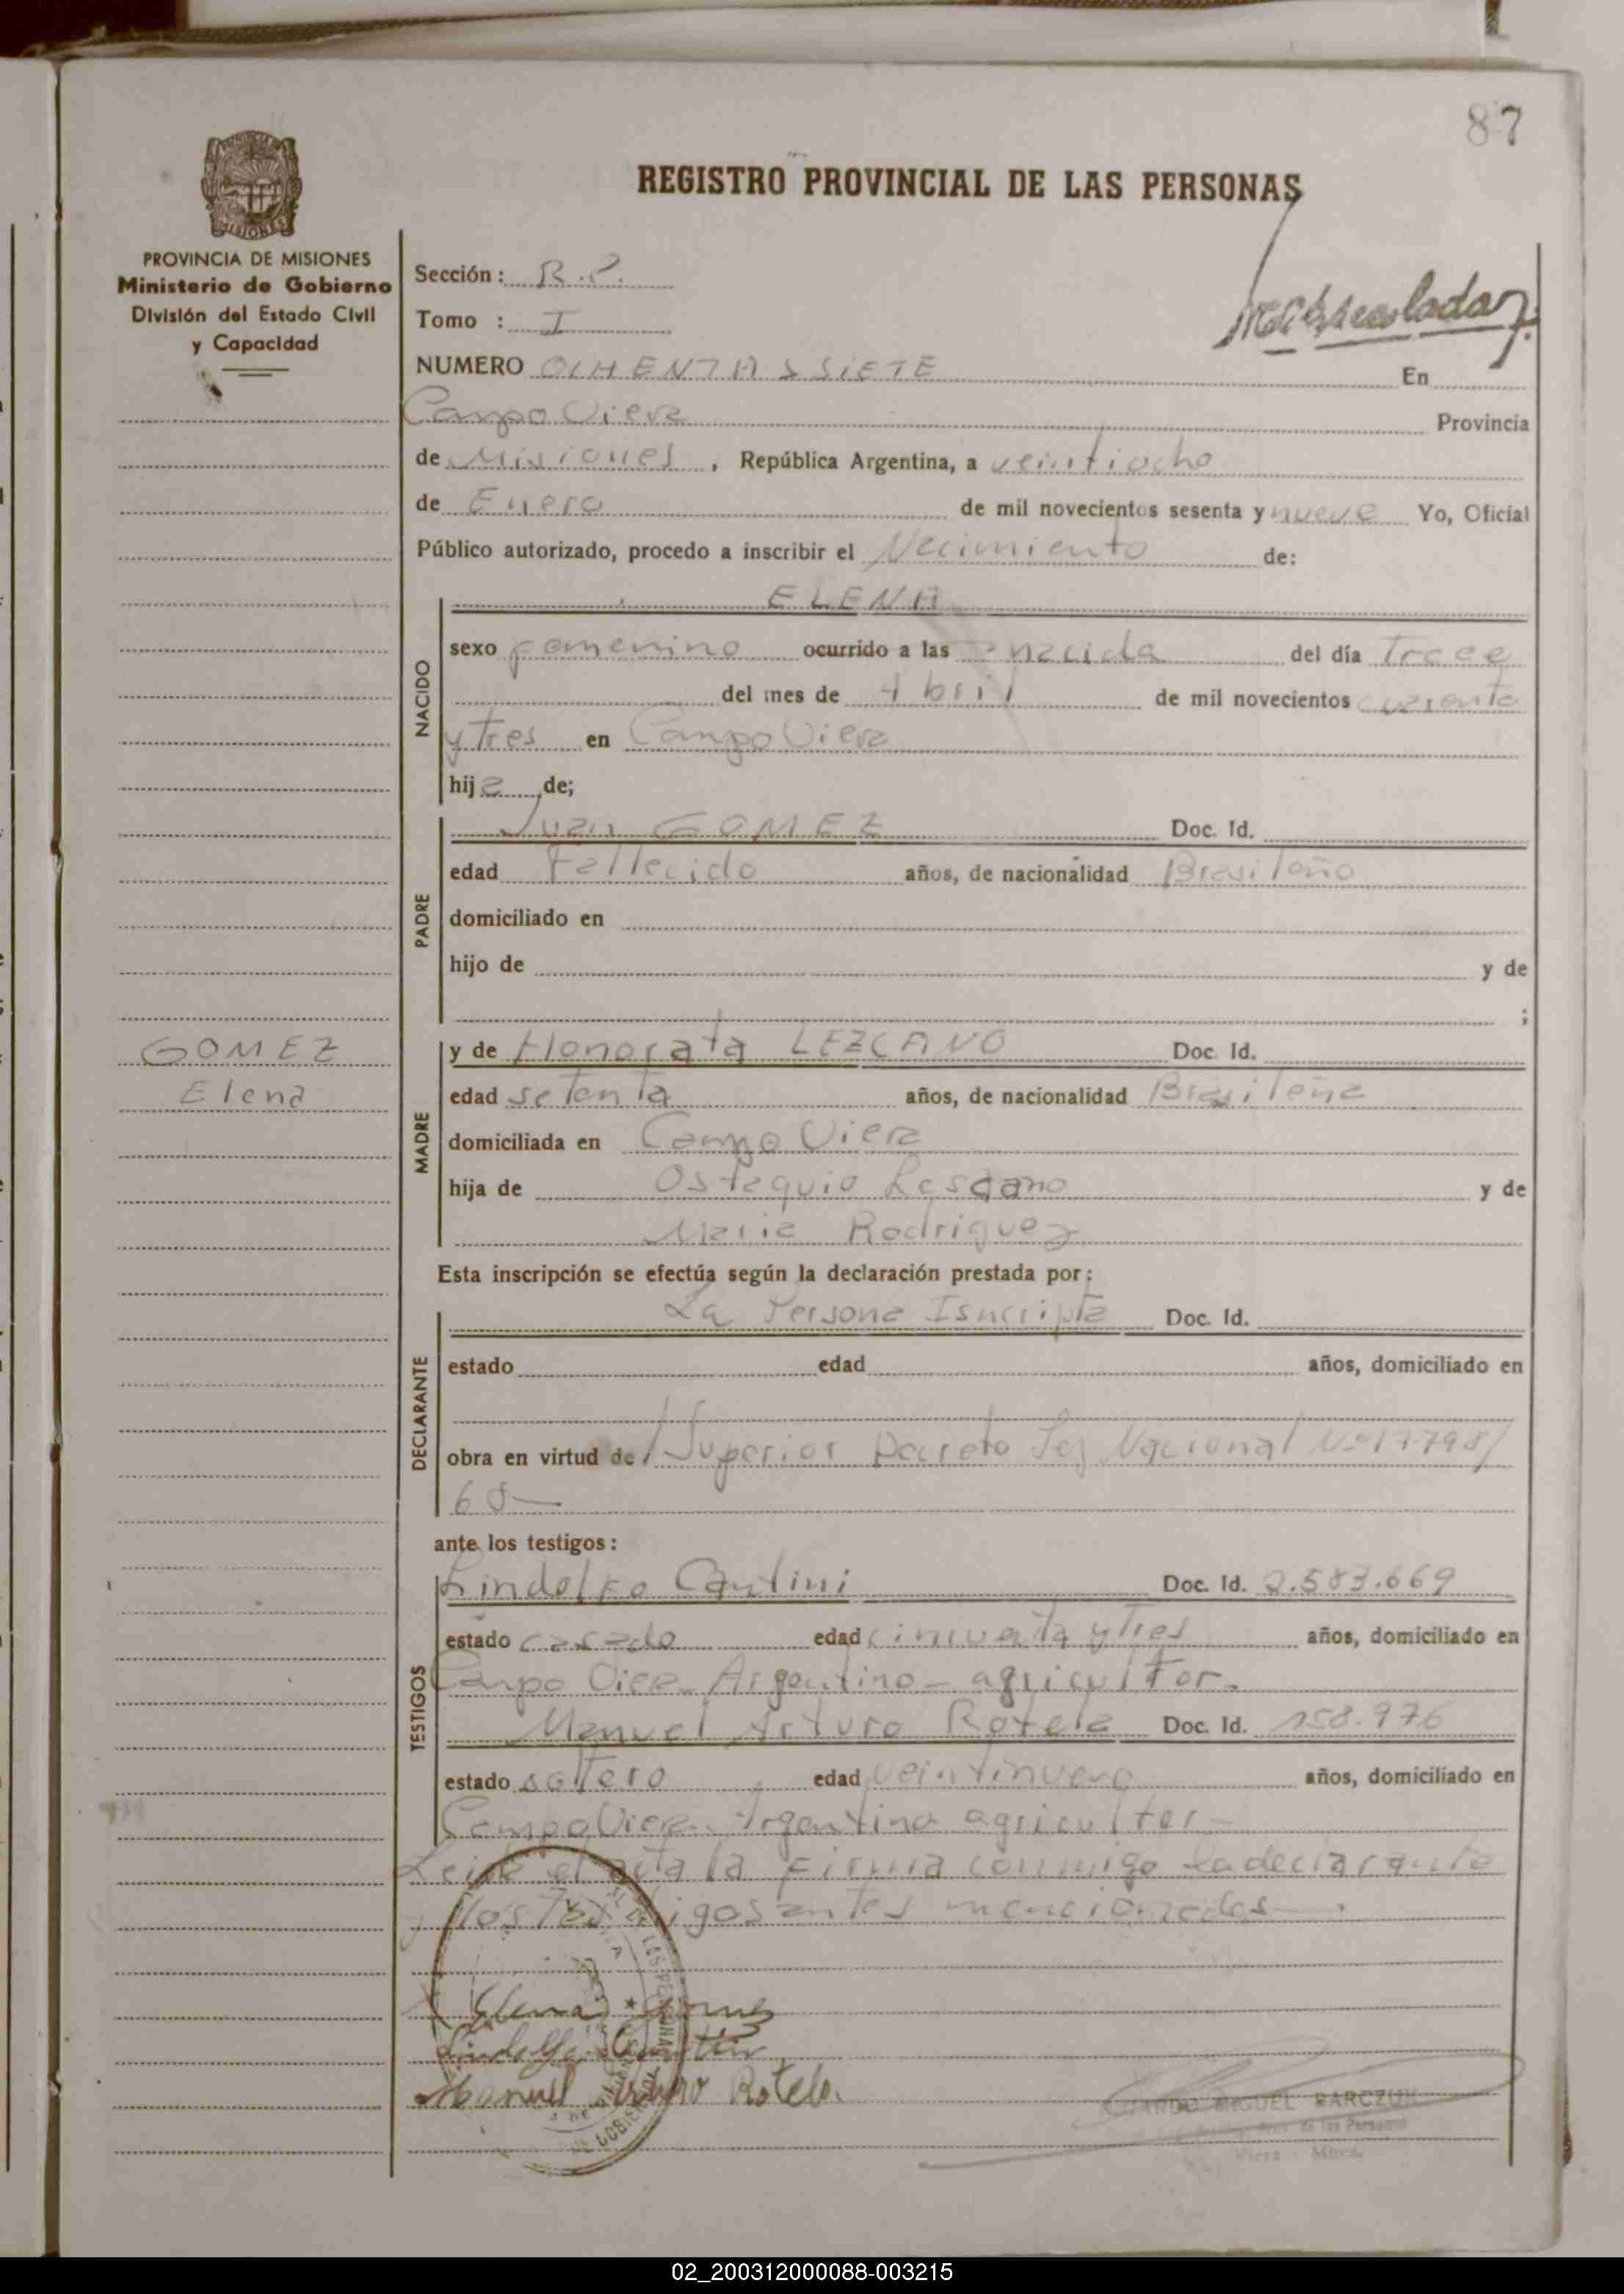 87
PROVINCIA DE MISIONES
Ministerio de Gobierno
División del Estado Civil
y Capacidad
REGISTRO PROVINCIAL DE LAS PERSONAS
Sección : R.P.
Tomo : I
NUMERO OCHENTA Y SIETE En
Campo Viera Provincia
de Misiones, República Argentina, a veintiocho
de Enero de mil novecientos sesenta y nueve Yo, Oficial
Público autorizado, procedo a inscribir el Nacimiento de:
NACIDO
ELENA
sexo femenino ocurrido a las nacida del día Trece
del mes de Abril de mil novecientos cuarenta
y tres en Campo Viera
hija de;
PADRE
Juan GOMEZ Doc. Id.
edad Fallecido años, de nacionalidad Brasileño
domiciliado en
hijo de y de
;
GOMEZ
Elena
MADRE
y de Honorata LEZCANO Doc. Id.
edad setenta años, de nacionalidad Brasileña
domiciliada en Campo Viera
hija de Ostaquio Lescano y de
Maria Rodriguez
Esta inscripción se efectúa según la declaración prestada por :
DECLARANTE
La Persona Isncripta Doc. Id.
estado edad años, domiciliado en
obra en virtud de / Superior Decreto Ley Nacional Nº 17798/
68—
ante los testigos :
TESTIGOS
Lindolfo Cantini Doc. Id. 2.583.669
estado casado edad cincuenta y tres años, domiciliado en
Campo Viera Argentino - agricultor.
Manuel Arturo Rotela Doc. Id. 158.976
estado soltero edad veintinueve años, domiciliado en
Campo Viera Argentino agricultor -
Leida el acta la Firma conmigo la declarante
y los Testigos antes mencionados —.
Elena Gomez
Lindolfo Cantini
Manuel Arturo Rotela
MIGUEL BARCZUK
de las Personas
Viera - Mnes.
02_200312000088-003215